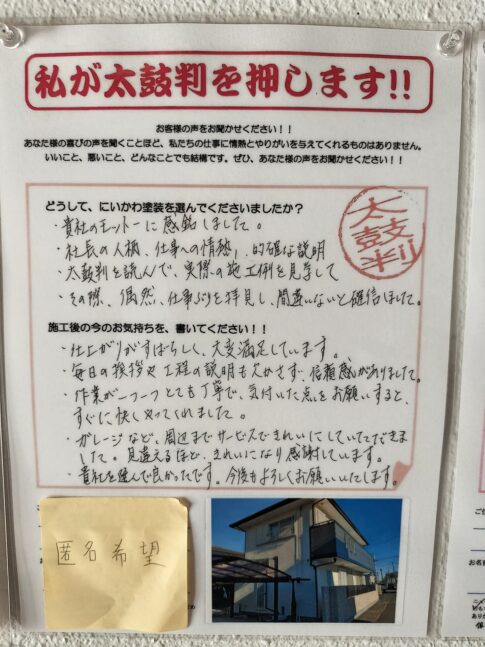 私が太鼓判を押します!!
お客様の声をお聞かせください！！
あなた様の喜びの声を聞くことほど、私たちの仕事に情熱とやりがいを与えてくれるものはありません。
いいこと、悪いこと、どんなことでも結構です。ぜひ、あなた様の声をお聞かせください！！
どうして、にいかわ塗装を選んでくださいましたか？
太鼓判
・貴社のモットーに感銘しました。
・社長の人柄、仕事への情熱、的確な説明
・太鼓判を読んで、実際の施工例を見学して
・その際、偶然、仕事ぶりを拝見し、間違いないと確信しました。
施工後の今のお気持ちを、書いてください！！
・仕上がりがすばらしく、大変満足しています。
・毎日の挨拶や工程の説明も欠かさず、信頼感がありました。
・作業が一つ一つとても丁寧で、気付いた点をお願いすると、
すぐに快くやってくれました。
・ガレージなど、周辺までサービスできれいにしていただきま
した。見違えるほど、きれいになり感謝しています。
・貴社を選んで良かったです。今後もよろしくお願いいたします。
匿名希望